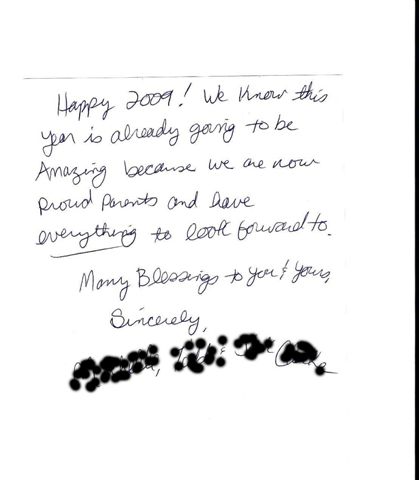 Happy 2009! We know this
year is already going to be
Amazing because we are now
proud parents and have
everything to look forward to.
Many Blessings to you & yours,
Sincerely,